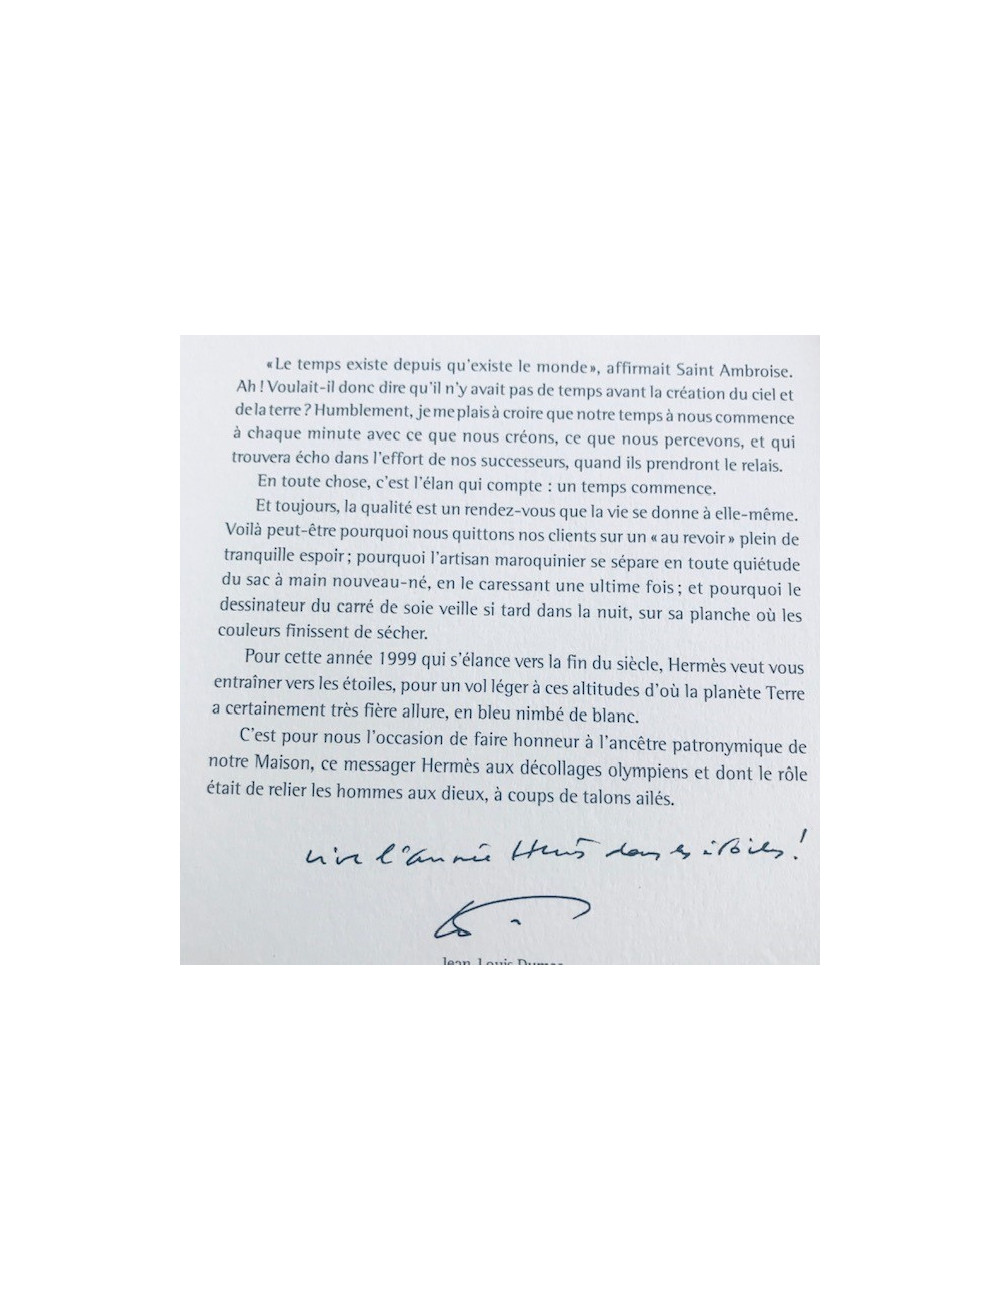 «Le temps existe depuis qu'existe le monde», affirmait Saint Ambroise.
Ah ! Voulait-il donc dire qu'il n'y avait pas de temps avant la création du ciel et
de la terre ? Humblement, je me plais à croire que notre temps à nous commence
à chaque minute avec ce que nous créons, ce que nous percevons, et qui
trouvera écho dans l'effort de nos successeurs, quand ils prendront le relais.
En toute chose, c'est l'élan qui compte : un temps commence.
Et toujours, la qualité est un rendez-vous que la vie se donne à elle-même.
Voilà peut-être pourquoi nous quittons nos clients sur un « au revoir » plein de
tranquille espoir ; pourquoi l'artisan maroquinier se sépare en toute quiétude
du sac à main nouveau-né, en le caressant une ultime fois ; et pourquoi le
dessinateur du carré de soie veille si tard dans la nuit, sur sa planche où les
couleurs finissent de sécher.
Pour cette année 1999 qui s'élance vers la fin du siècle, Hermès veut vous
entraîner vers les étoiles, pour un vol léger à ces altitudes d'où la planète Terre
a certainement très fière allure, en bleu nimbé de blanc.
C'est pour nous l'occasion de faire honneur à l'ancêtre patronymique de
notre Maison, ce messager Hermès aux décollages olympiens et dont le rôle
était de relier les hommes aux dieux, à coups de talons ailés.
vive l'année Hermès dans les étoiles !
Jean-Louis Dumas